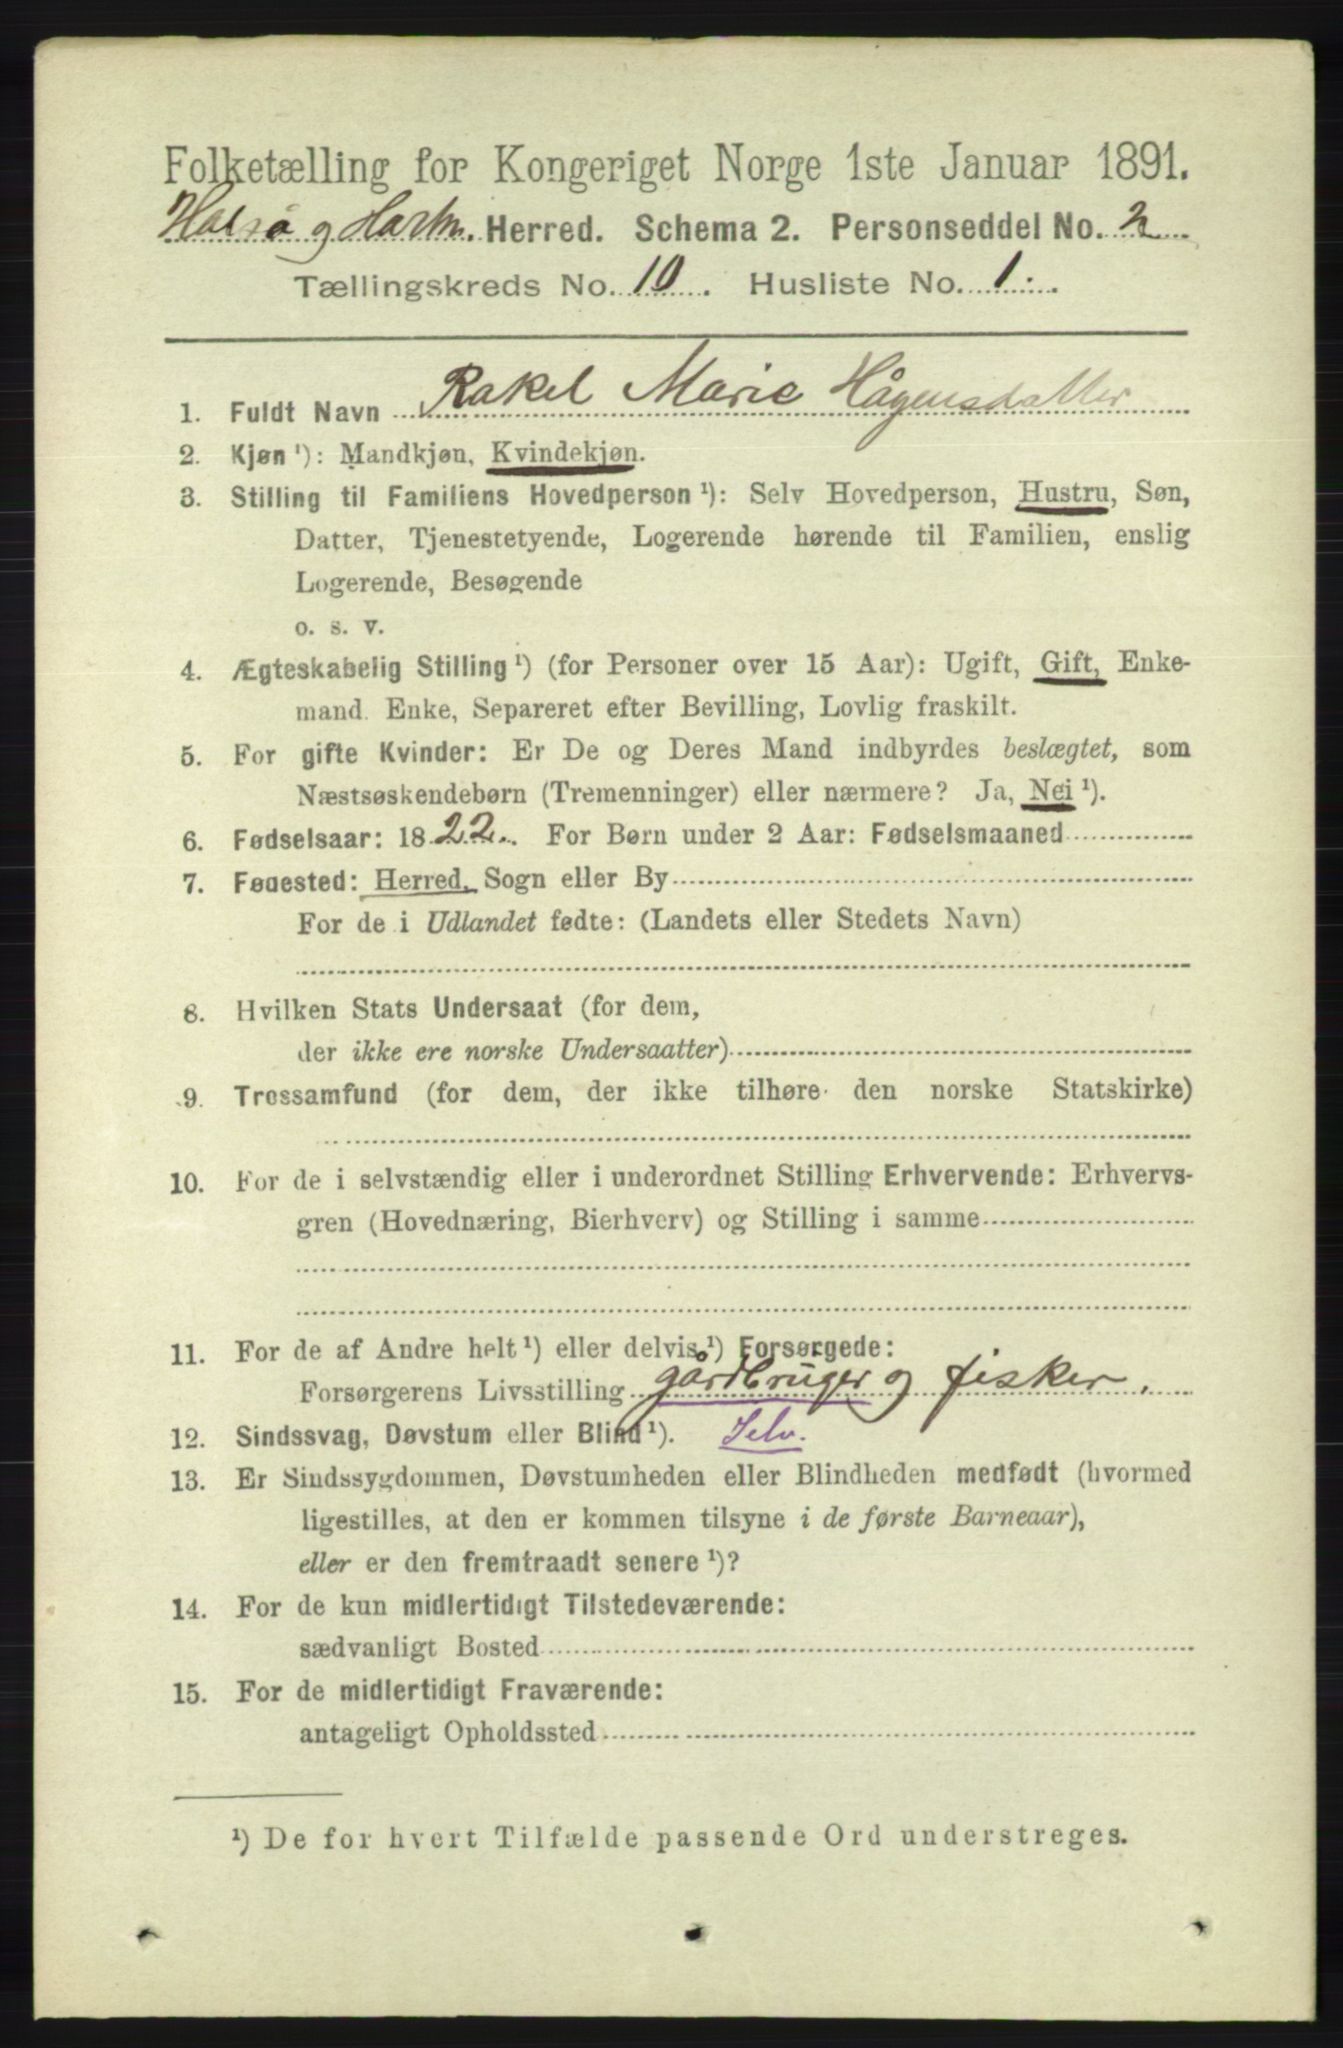 Folketælling for Kongeriget Norge 1ste Januar 1891.
Halså og Harkm. Herred. Schema 2. Personseddel No. 2
Tællingskreds No. 10. Husliste No. 1.
1. Fuldt Navn Rakel Marie Hågensdatter
2. Kjøn ¹): Mandkjøn, Kvindekjøn.
3. Stilling til Familiens Hovedperson ¹): Selv Hovedperson, Hustru, Søn,
Datter, Tjenestetyende, Logerende hørende til Familien, enslig
Logerende, Besøgende
o. s. v.
4. Ægteskabelig Stilling ¹) (for Personer over 15 Aar): Ugift, Gift, Enke-
mand. Enke, Separeret efter Bevilling, Lovlig fraskilt.
5. For gifte Kvinder: Er De og Deres Mand indbyrdes beslægtet, som
Næstsøskendebørn (Tremenninger) eller nærmere? Ja, Nei ¹).
6. Fødselsaar: 1822. For Børn under 2 Aar: Fødselsmaaned
7. Fødested: Herred, Sogn eller By
For de i Udlandet fødte: (Landets eller Stedets Navn)
8. Hvilken Stats Undersaat (for dem,
der ikke ere norske Undersaatter)
9. Trossamfund (for dem, der ikke tilhøre den norske Statskirke)
10. For de i selvstændig eller i underordnet Stilling Erhvervende: Erhvervs-
gren (Hovednæring, Bierhverv) og Stilling i samme
11. For de af Andre helt ¹) eller delvis ¹) Forsørgede:
Forsørgerens Livsstilling gårdbruger og fisker.
12. Sindssvag, Døvstum eller Blind ¹). Selv.
13. Er Sindssygdommen, Døvstumheden eller Blindheden medfødt (hvormed
ligestilles, at den er kommen tilsyne i de første Barneaar),
eller er den fremtraadt senere ¹)?
14. For de kun midlertidigt Tilstedeværende:
sædvanligt Bosted
15. For de midlertidigt Fraværende:
antageligt Opholdssted
¹) De for hvert Tilfælde passende Ord understreges.